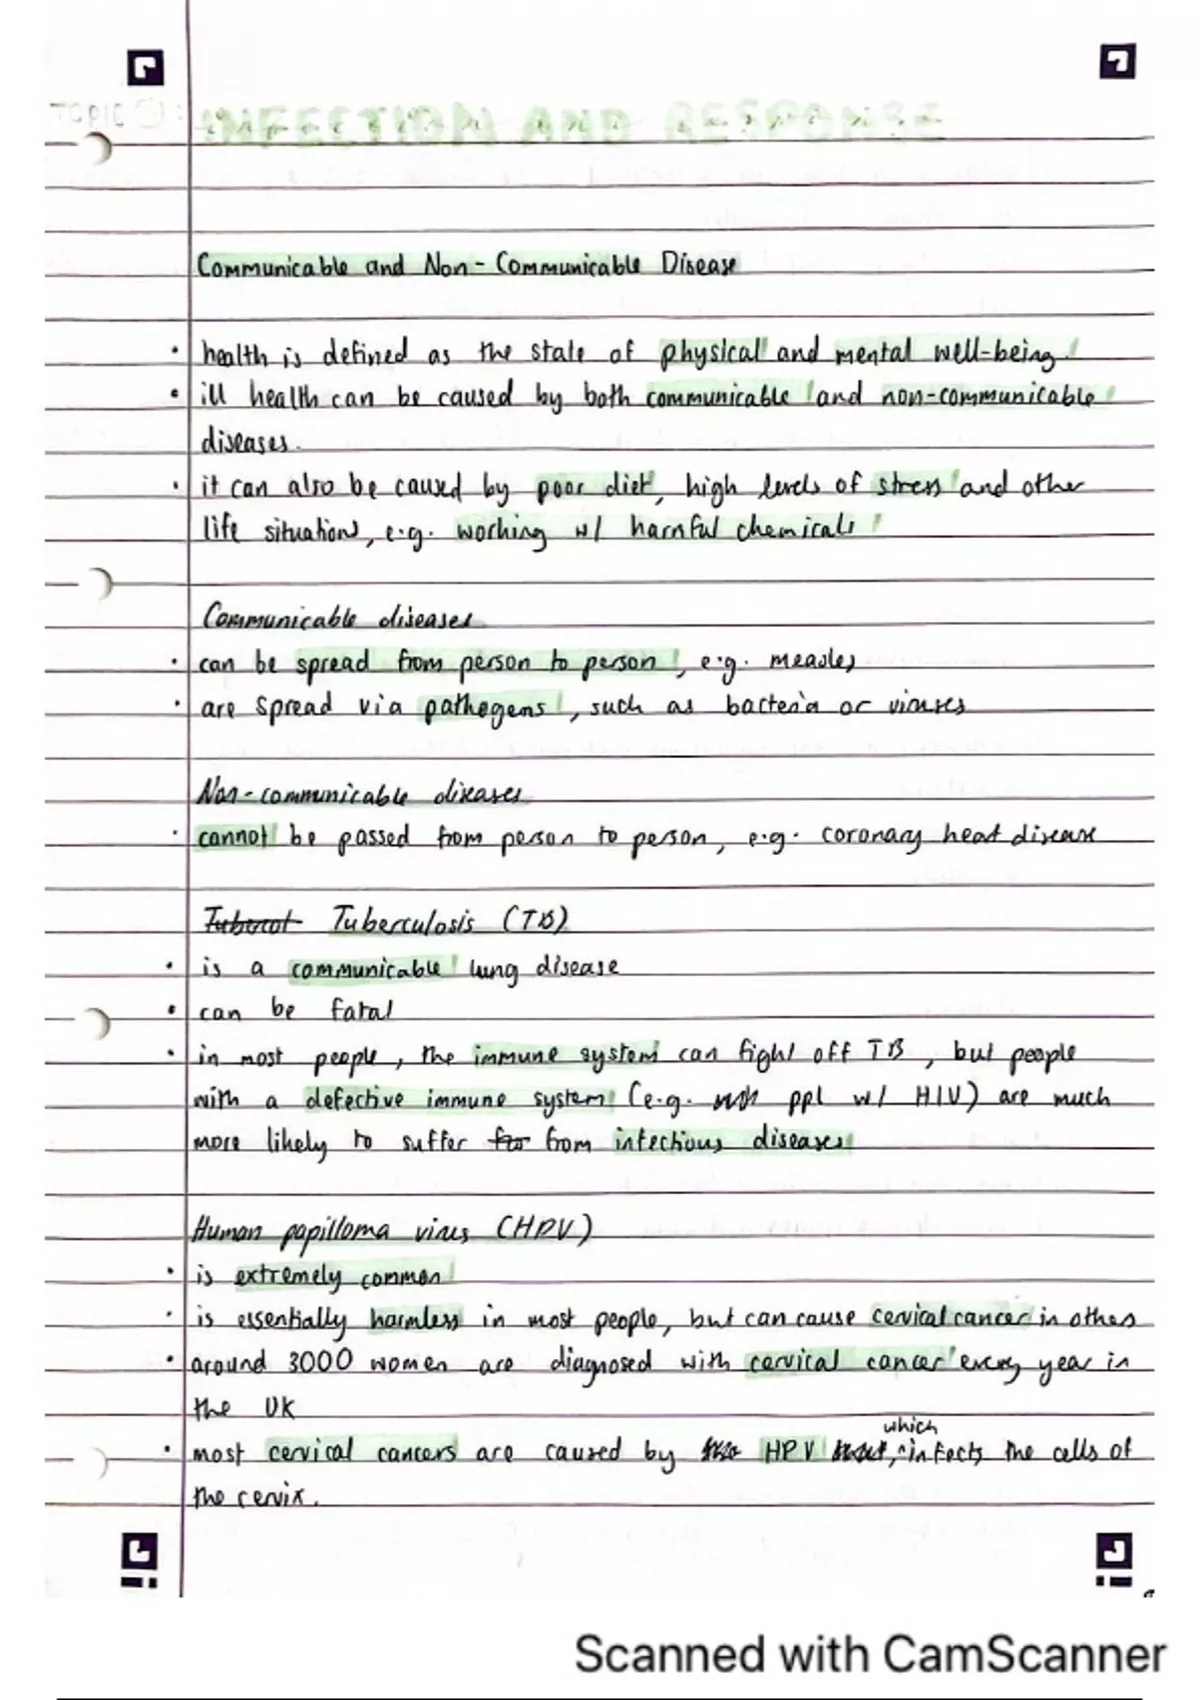 INFECTION AND RESPONSE
Communicable and Non-Communicable Disease
• health is defined as the state of physical and mental well-being.
• ill health can be caused by both communicable and non-communicable
diseases.
• it can also be caused by poor diet, high levels of stress and other
life situations, e.g. working w/ harmful chemicals
Communicable diseases
• can be spread from person to person, e.g. measles
• are spread via pathogens, such as bacteria or viruses
Non-communicable diseases
• cannot be passed from person to person, e.g. coronary heart disease
Tubercol Tuberculosis (TB)
• is a communicable lung disease
• can be fatal
• in most people, the immune system can fight off TB, but people
with a defective immune system (e.g. ppl w/ HIV) are much
more likely to suffer from infectious diseases
Human papilloma virus (HPV)
• is extremely common
• is essentially harmless in most people, but can cause cervical cancer in others
• around 3000 women are diagnosed with cervical cancer every year in
the UK
which
• most cervical cancers are caused by HPV, infects the cells of
the cervix.
Scanned with CamScanner